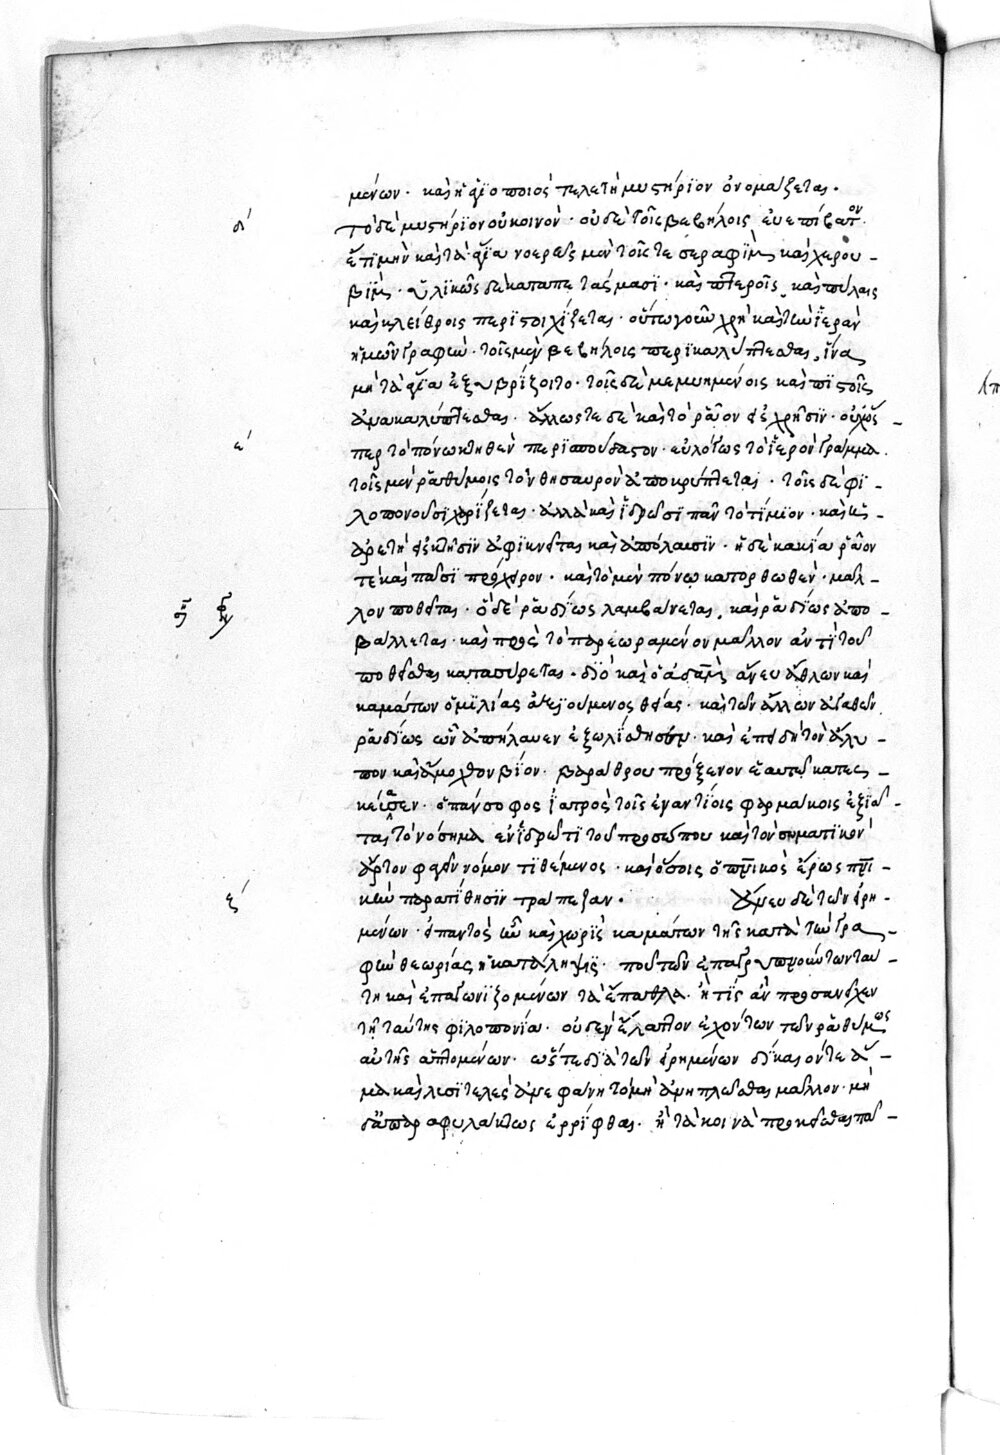 μένων· καὶ ἡ ἁγιοποιὸς τελετὴ μυστήριον ὀνομάζεται.
δ΄
Τὸ δὲ μυστήριον οὐ κοινὸν· οὐδὲ τοῖς βεβήλοις εὐεπίβατον.
ἔτι μὴν καὶ τὰ ἅγια νοερῶς μὲν τοῖς τε σεραφὶμ καὶ χερου-
βίμ· ὑλικῶς δὲ καταπετάσμασι· καὶ πτεροῖς, καὶ πύλαις
καὶ κλείθροις περιστοιχίζεται· οὕτω γοῦν χρὴ καὶ τὴν ἱερὰν
ἡμῶν γραφὴν· τοῖς μὲν βεβήλοις περικαλύπτεσθαι, ἵνα
μὴ τὰ ἅγια ἐξυβρίζοιτο· τοῖς δὲ μεμυημένοις καὶ πιστοῖς
ἀνακαλύπτεσθαι. ἄλλως τε δὲ καὶ τὸ ῥᾷον εἰς χρῆσιν· οὐχ ὥσ-
ε΄
περ τὸ πόνῳ κτηθὲν περισπούδαστον· εὐλόγως τὸ ἱερὸν γράμμα.
τοῖς μὲν ῥαθύμοις τὸν θησαυρὸν ἀποκρύπτεται· τοῖς δὲ φι-
λοπονοῦσι χαρίζεται· ἀλλὰ καὶ ἱδρῶσι πᾶν τὸ τίμιον· καὶ
ἀρετὴ εἰς κτῆσιν ἀφικνεῖται καὶ ἀπόλαυσιν· ἡ δὲ κακία ῥᾷον
τε καὶ πᾶσι πρόχειρον· καὶ τὸ μὲν πόνῳ κατορθωθὲν· μᾶλ-
λον ποθεῖται· ὃ δὲ ῥᾳδίως λαμβάνεται, καὶ ῥᾳδίως ἀπο-
βάλλεται· καὶ πρὸς τὸ παρεωραμένον μᾶλλον ἀντὶ τοῦ
ποθεῖσθαι κατασύρεται· διὸ καὶ ὁ ἀδὰμ ἄνευ ἄθλων καὶ
καμάτων ὁμιλίας ἀξιούμενος θείας· καὶ τῶν ἄλλων ἀγαθῶν
ῥᾳδίως ὧν ἀπήλαυεν ἐξωλίσθησεν· καὶ ἐπειδὴ τὸν ἄλυ-
πον καὶ ἄμοχθον βίον· βαράθρου πρόξενον ἑαυτῷ κατεσ-
κεύασεν· ὁ πάνσοφος ἰατρὸς τοῖς ἐναντίοις φαρμάκοις ἐξιᾶ-
ται τὸ νόσημα ἐν ἱδρῶτι τοῦ προσώπου καὶ τὸν σωματικὸν
ἄρτον φαγεῖν νόμον τιθέμενος· καὶ ὅσοις ὁ πνικὸς ἔρως πνι-
ϛ΄
κὴν παρατίθησιν τράπεζαν. Ἄνευ δὲ τῶν εἰρη-
μένων· εἰ παντὸς οὖν καὶ χωρὶς καμάτων τῆς κατὰ τὴν γρα-
φὴν θεωρίας ἡ κατάληψις· ποῦ τῶν ἐπαγρυπνούντων ταύ-
τῃ καὶ ἐπαγωνιζομένων τὰ ἔπαθλα· ἢ τίς ἂν προσανέχειν
τῇ ταύτης φιλοπονίᾳ· οὐδὲν ἔλαττον ἐχόντων τῶν ῥαθύμως
αὐτῆς ἁπτομένων· ὥστε διὰ τῶν εἰρημένων δίκαιόν τε ἅ-
μα καὶ λυσιτελὲς ἀνεφάνη τὸ μὴ ἀναπλοῦσθαι μᾶλλον· μὴ
δ᾽ ἀπαραφυλάκτως ἐρρίφθαι· ἢ τὰ κοινὰ προκεῖσθαι πᾶ-